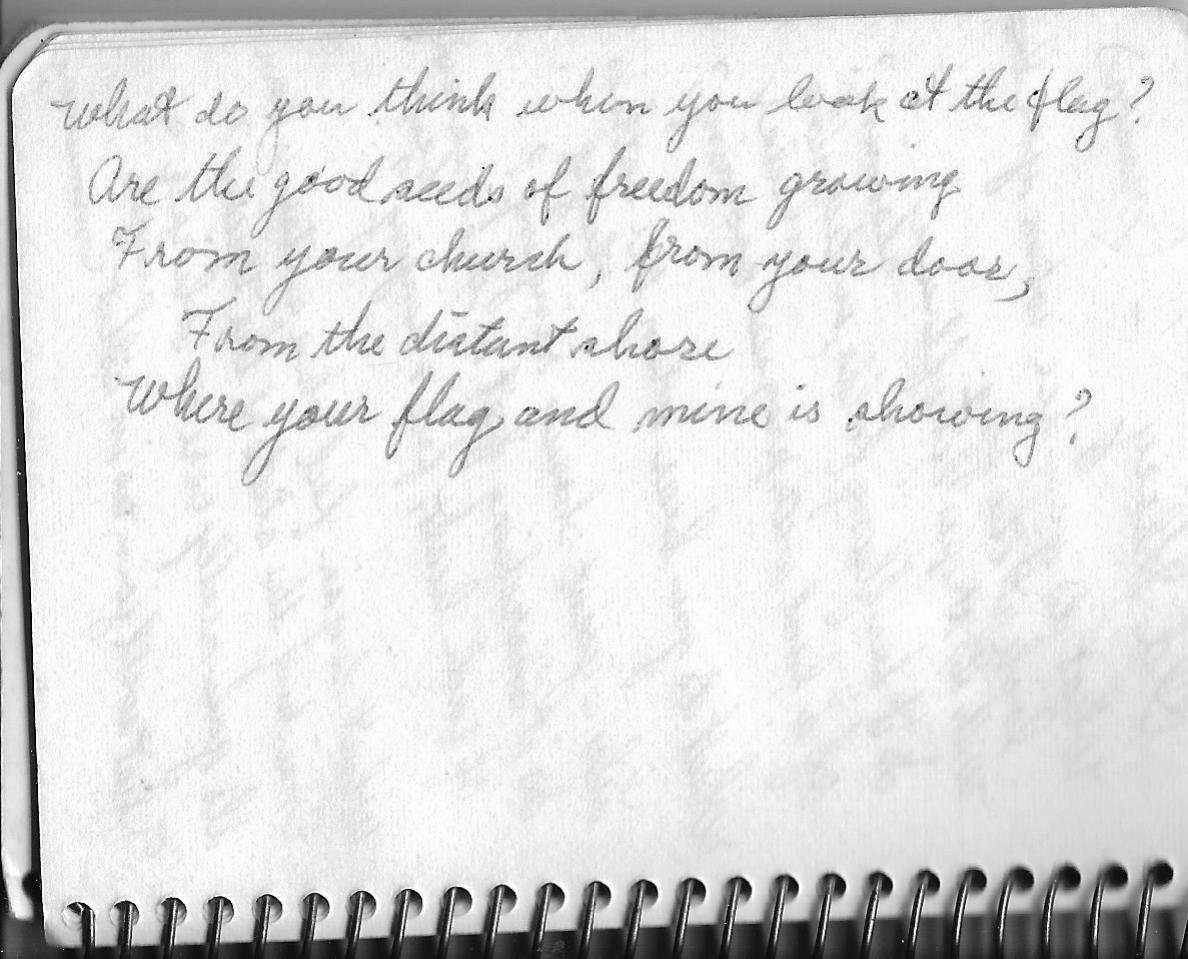 What do you think when you look at the flag?
Are the good seeds of freedom growing
From your church, from your door,
From the distant shore
Where your flag and mine is showing?